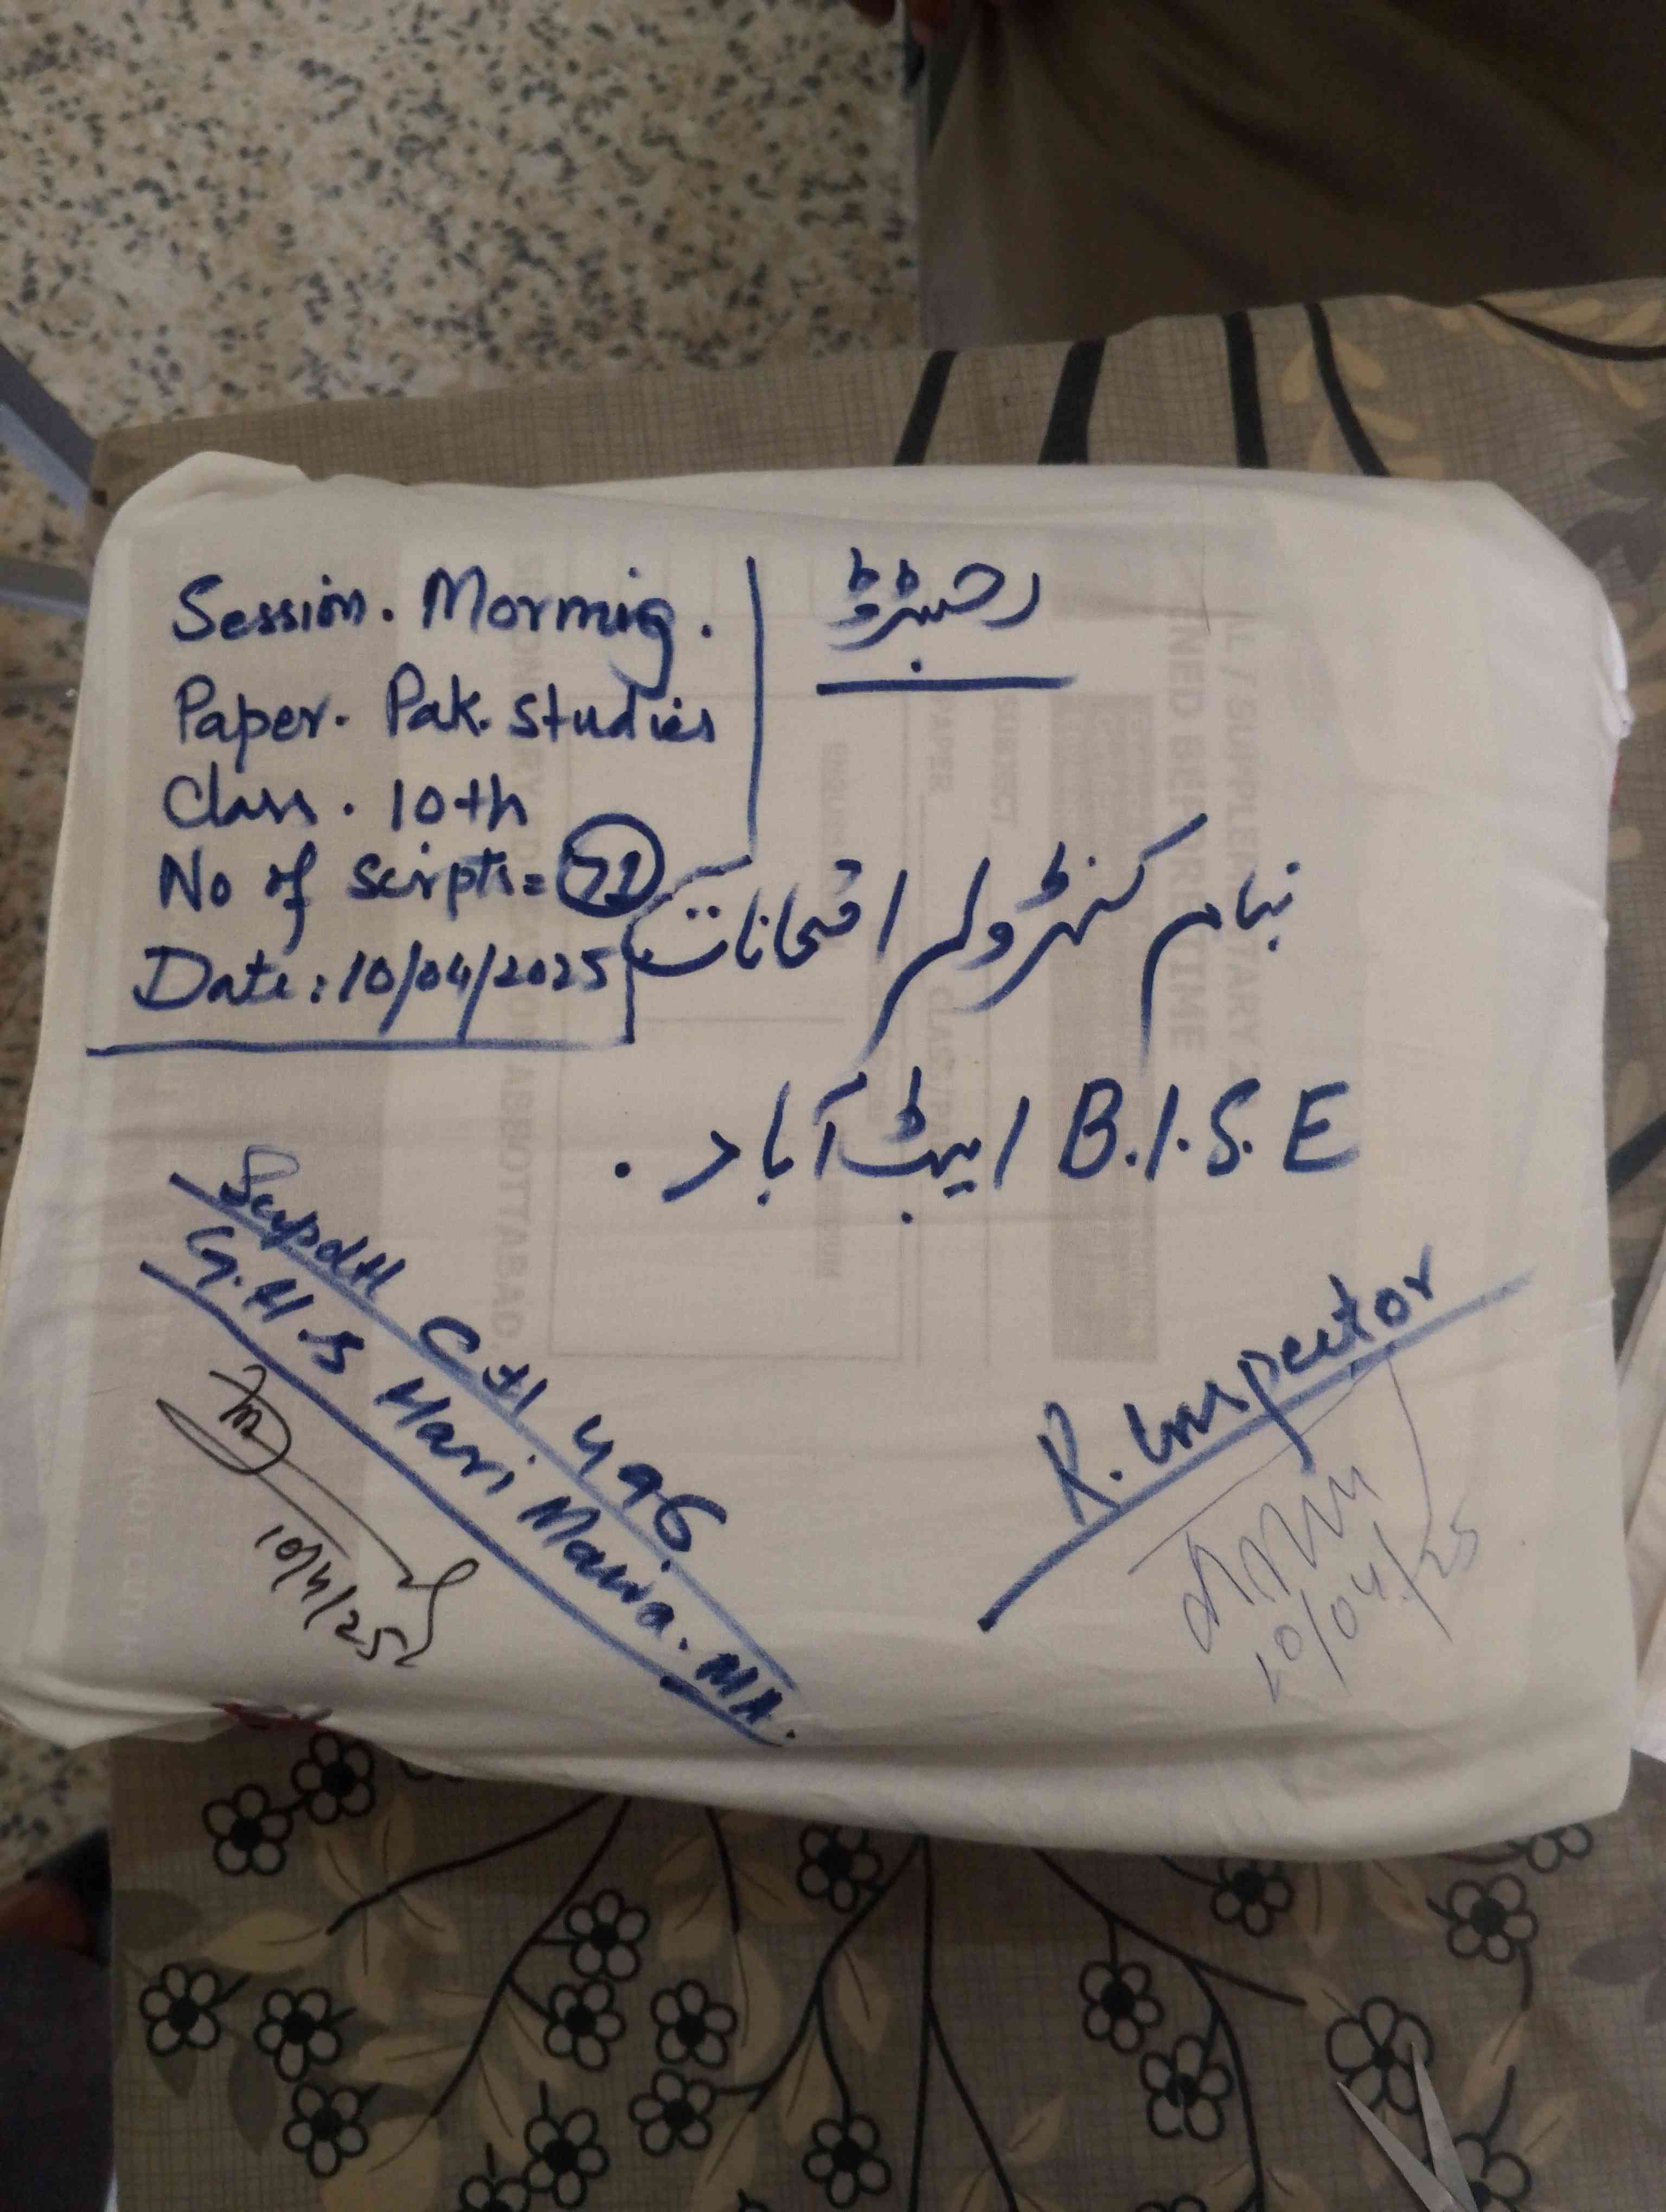 Session. Morning.
Paper. Pak. Studies
Class. 10th
No of scirpts=
Date: 10/04/2025
رجسٹرڈ
بنام کنٹرولر امتحانات
B.I.S.E ایبٹ آباد .
Supdtt C#1 496
G.H.S Hari Maira. MA.
10/4/25
R. Inspector
10/04/25
SUBJECT
PAPER